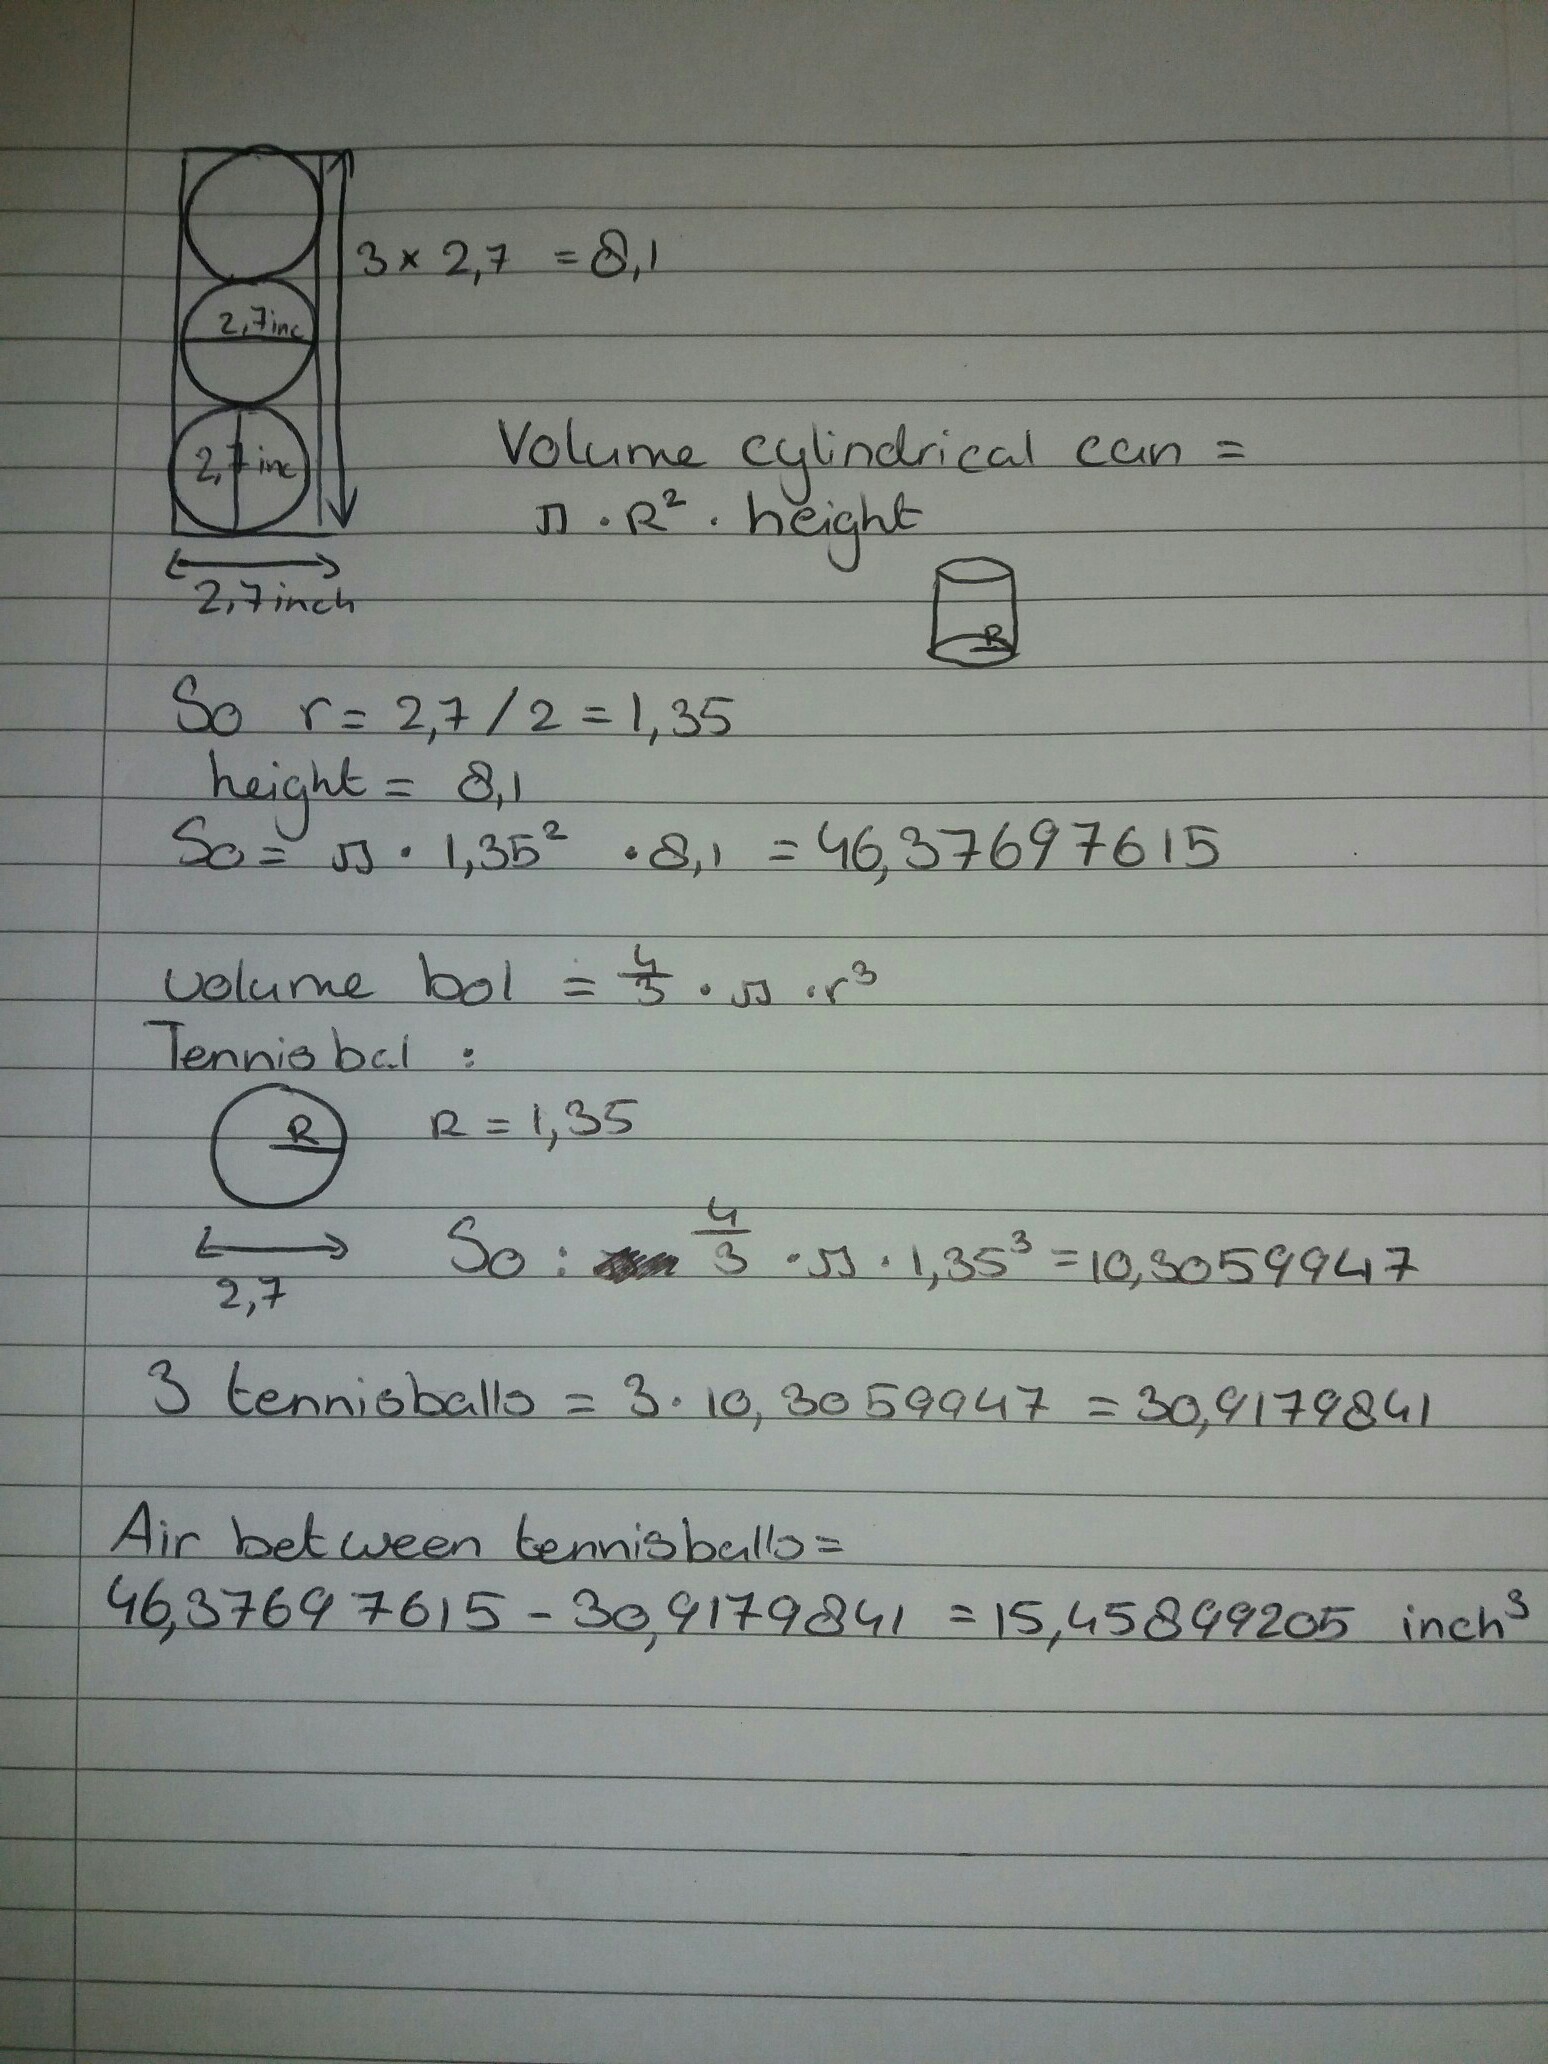 3 × 2,7 = 8,1
2,7 inc
2,7 inc
2,7 inch
Volume cylindrical can =
π · R² · height
R
So r = 2,7 / 2 = 1,35
height = 8,1
So = π · 1,35² · 8,1 = 46,37697615
volume bol = 4/3 · π · r³
Tennisbal :
R
R = 1,35
2,7
So : 4/3 · π · 1,35³ = 10,30599947
3 tennisballs = 3 · 10,3059947 = 30,9179841
Air between tennisballs =
46,37697615 - 30,9179841 = 15,45899205 inch³